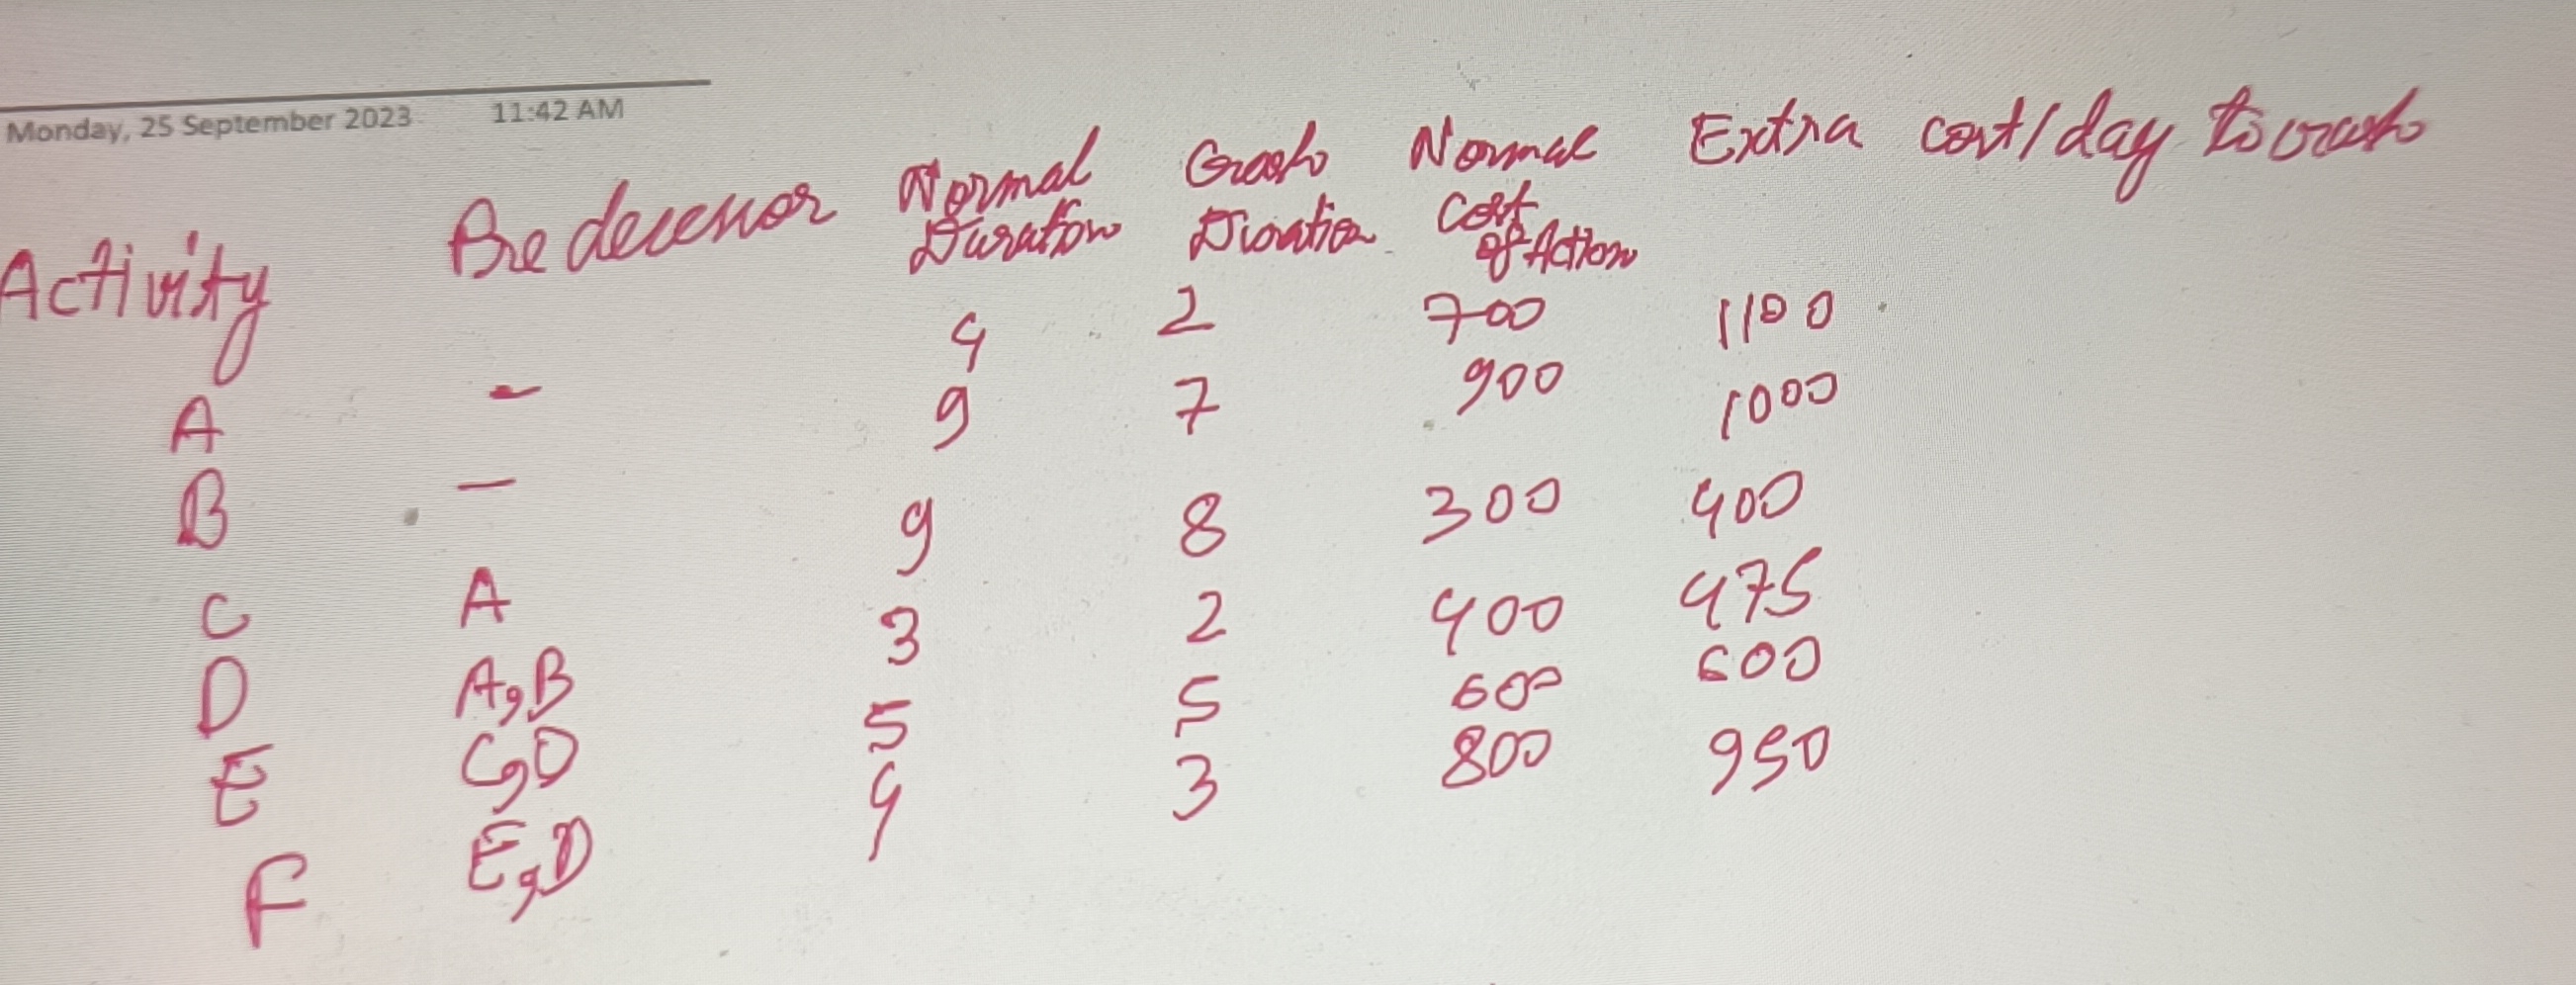 Monday, 25 September 2023 11:42 AM
Activity Predecessor Normal Duration Crash Duration Normal Cost of Action Extra cost/day to crash
A - 4 2 700 1100
B - 9 7 900 1000
C A 9 8 300 400
D A,B 3 2 400 475
E C,D 5 5 600 600
F E,D 4 3 800 950